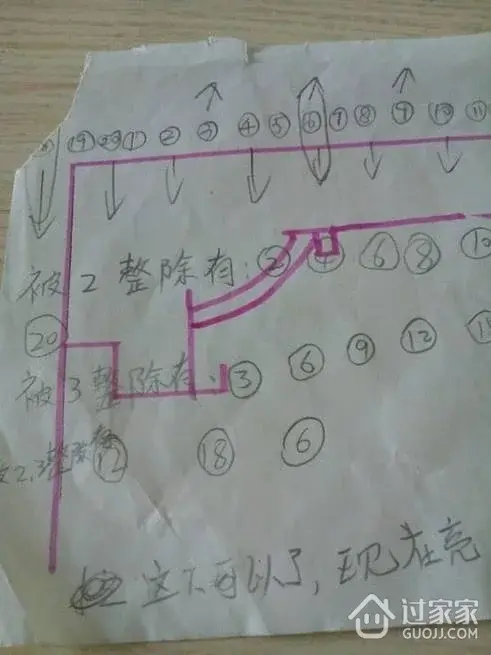 ① ② ③ ④ ⑤ ⑥ ⑦ ⑧ ⑨ ⑩ ⑪
被2整除有:② ④ ⑥ ⑧ ⑩
⑳
被3整除有 ③ ⑥ ⑨ ⑫
2,3整除有 ⑫ ⑱ ⑥
这下可以了,现在亮
过家家
GUOJJ.COM